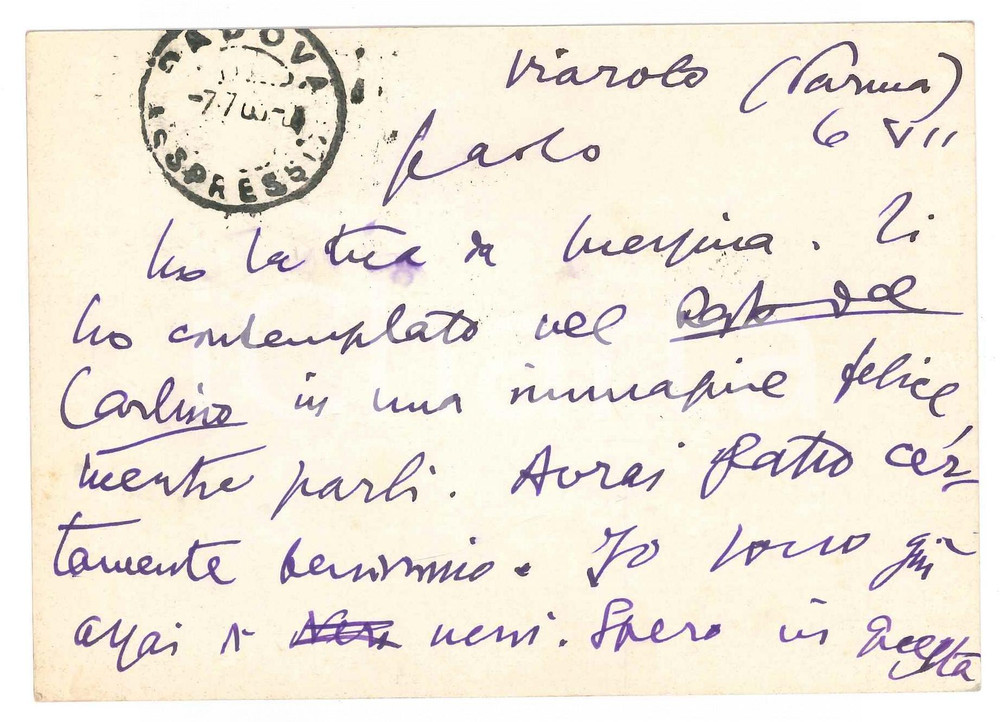 PADOVA
-7.7.60-
ESPRESSI
Viarolo (Parma)
6 VII
Paolo
ho la tua da Messina. Ti
ho contemplato nel Resto del
Carlino in una immagine felice
mentre parli. Avrai fatto cer-
tamente benissimo. Io sono qui
assai nervi. Spero in questa